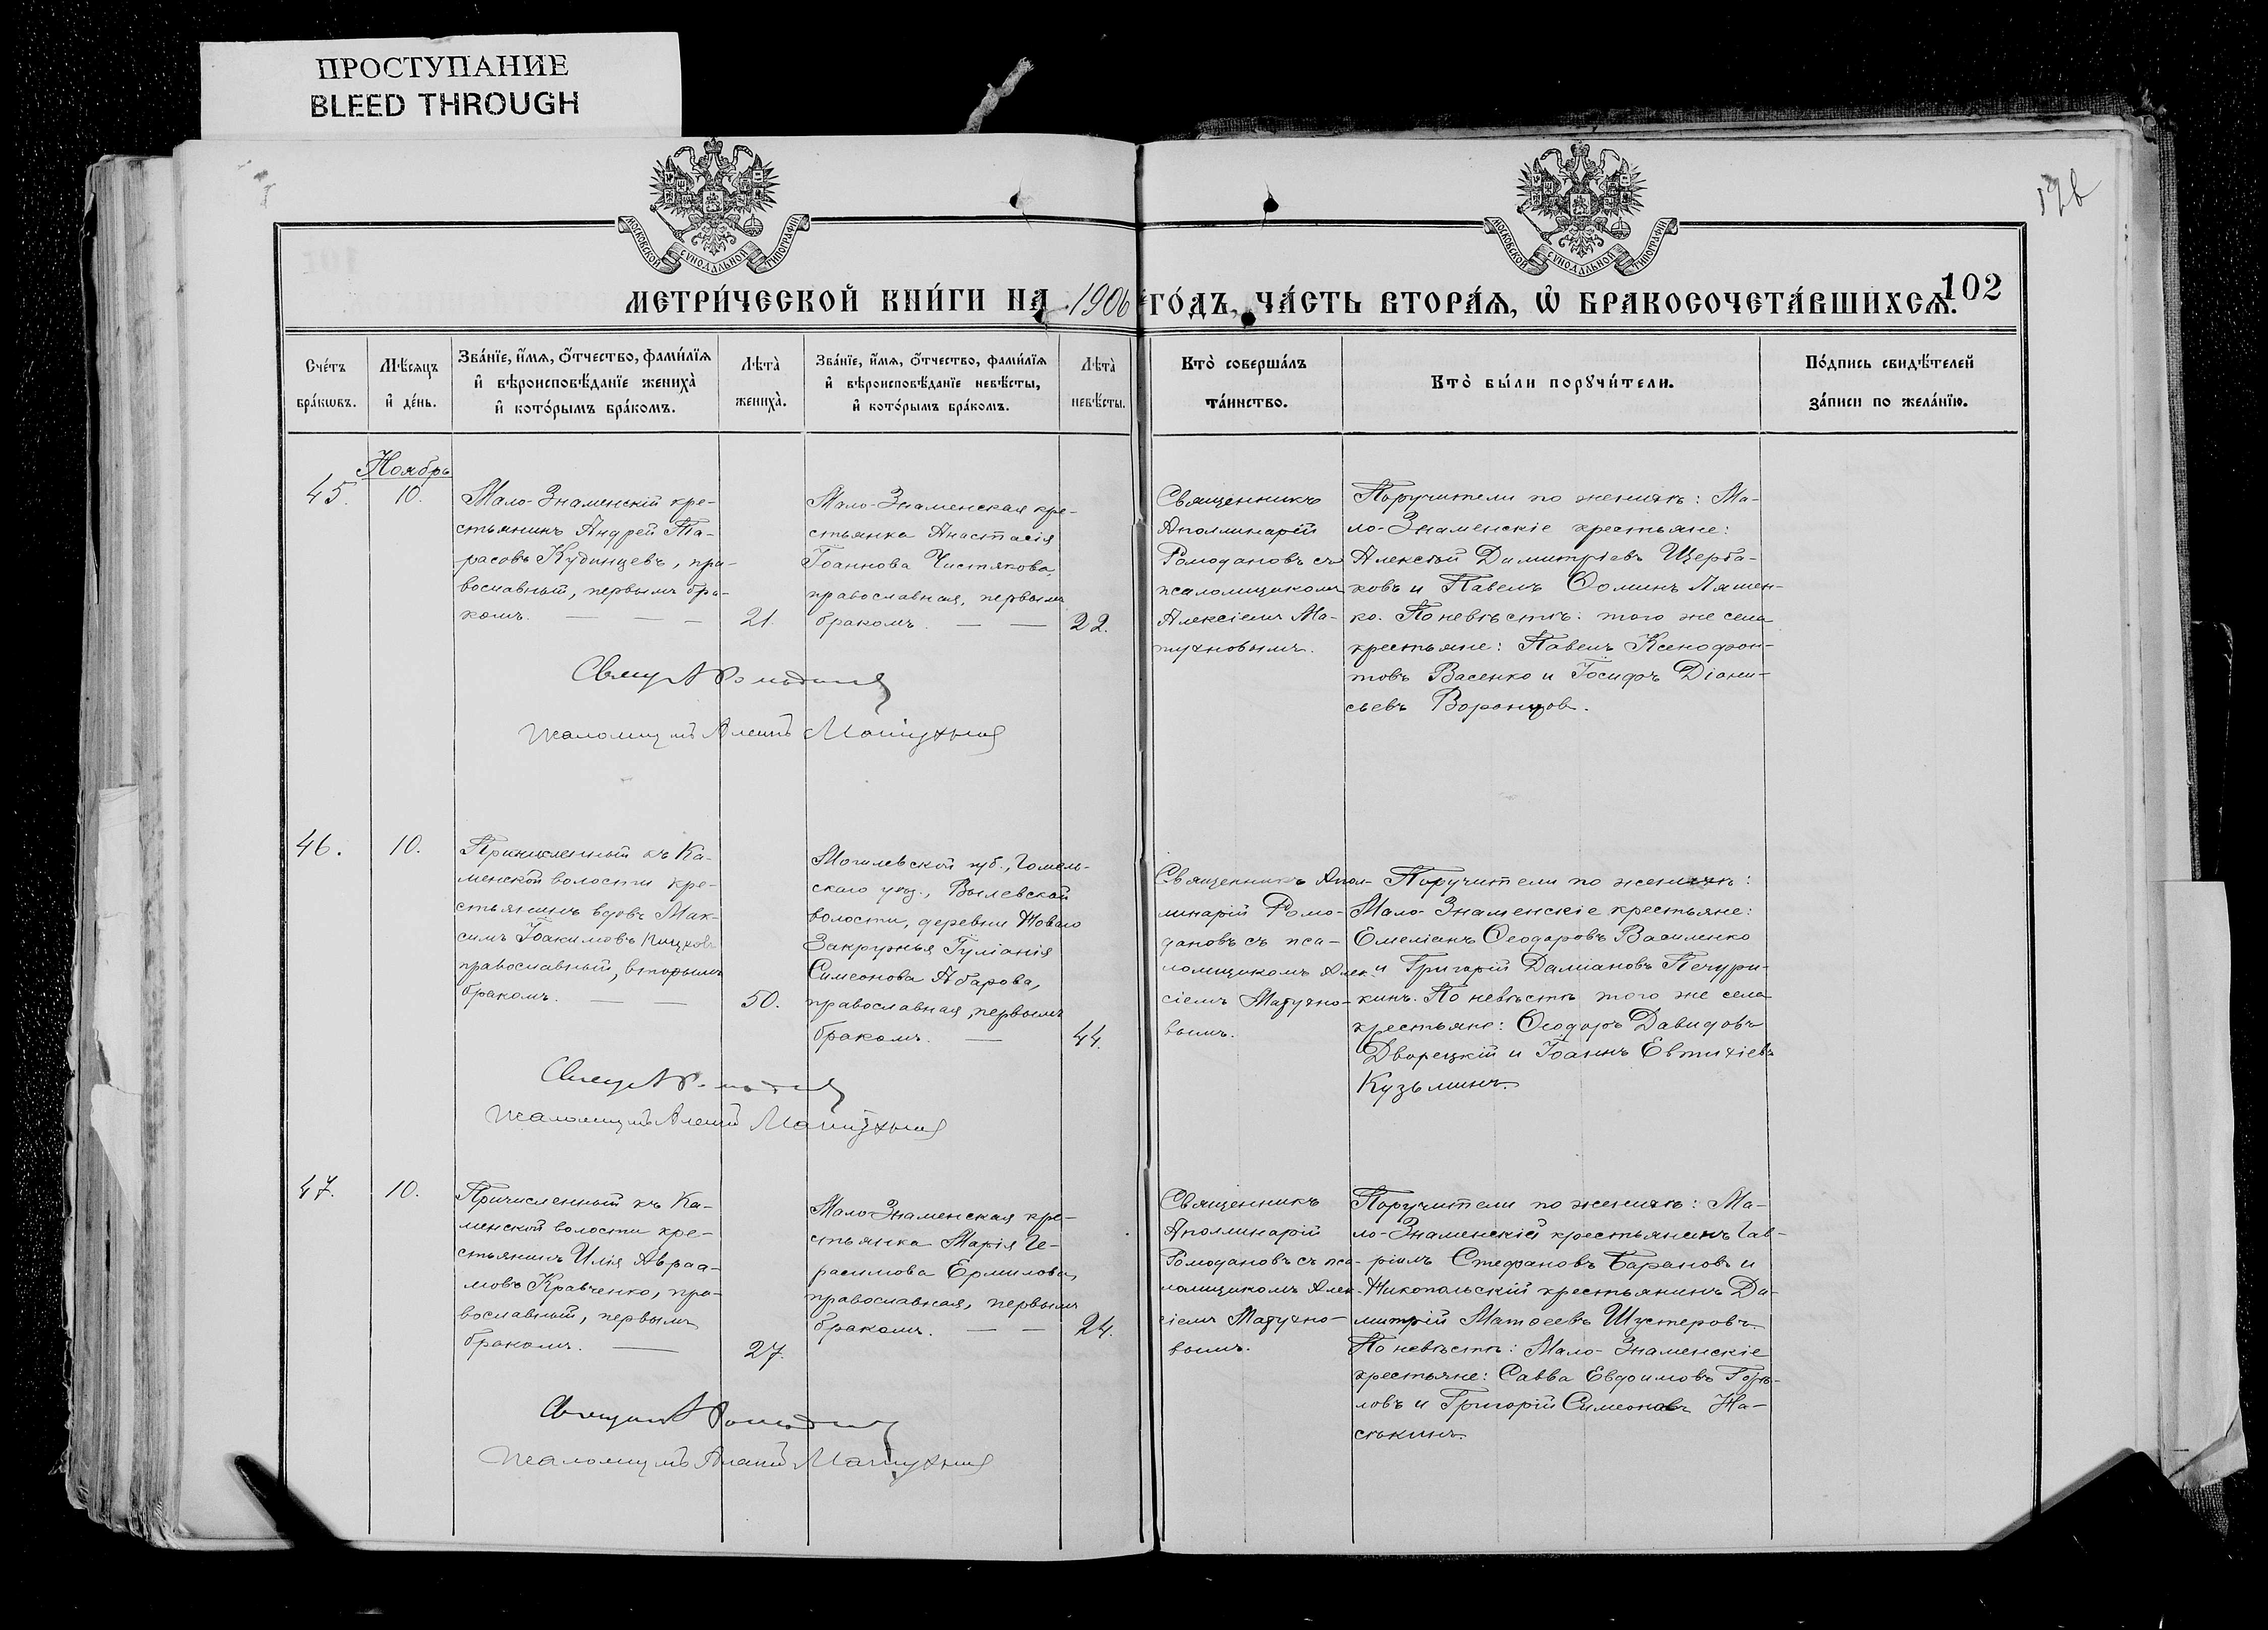 ПРОСТУПАНИЕ
BLEED THROUGH
МОСКОВСКОЙ СѴНОДАЛЬНОЙ ТИПОГРАФІИ
МОСКОВСКОЙ СѴНОДАЛЬНОЙ ТИПОГРАФІИ
102
МЕТРИ́ЧЕСКОЙ КНИ́ГИ НА 1906 ГО́ДЪ, ЧА́СТЬ ВТОРА́Я, Ѡ БРАКОСОЧЕТА́ВШИХСЯ.
Сче́тъ
бра́кѡвъ.
Мѣ́сяцъ
и҆ де́нь.
Зва́нїе, и҆́мя, ѻ҆́тчество, фами́лїя
и҆ вѣроисповѣ́данїе жениха̀
и҆ кото́рымъ бра́комъ.
Лѣта̀
жениха̀.
Зва́нїе, и҆́мя, ѻ҆́тчество, фами́лїя
и҆ вѣроисповѣ́данїе невѣ́сты,
и҆ кото́рымъ бра́комъ.
Лѣта̀
невѣ́сты.
Кто̀ соверша́лъ
та́инство.
Кто̀ бы́ли порꙋчи́тели.
По́дпись свидѣ́телей
за́писи по жела́нїю.
Ноябрь
45.
10.
Мало-Знаменскій кре-
стьянинъ Андрей Та-
расовъ Кудинцевъ, пра-
вославный, первымъ бра-
комъ. — — —
21.
Мало-Знаменская кре-
стьянка Анастасія
Іоаннова Чистякова,
православная, первымъ
бракомъ. — —
22.
Священникъ
Аполлинарій
Ромодановъ съ
псаломщикомъ
Алексіемъ Ма-
тухновымъ.
Поручители по женихѣ: Ма-
ло-Знаменскіе крестьяне:
Алексѣй Димитріевъ Щерба-
ковъ и Павелъ Ѳоминъ Ляшен-
ко. По невѣстѣ: того же села
крестьяне: Павелъ Ксенофон-
товъ Васенко и Іосифъ Діони-
сьевъ Воронцов.
46.
10.
Причисленный къ Ка-
менской волости кре-
стьянинъ вдовъ Мак-
симъ Іоакимовъ
православный, вторымъ
бракомъ. — —
50.
Могилевской губ., Гомель-
скаго уѣз.,
волости, деревни Новаго
Закружья Іуліанія
Симеонова Абарова,
православная, первымъ
бракомъ. —
44.
Священникъ Апол-
линарій Ромо-
дановъ съ пса-
ломщикомъ Алек-
сіемъ Матухно-
вымъ.
Поручители по женихѣ:
Мало-Знаменскіе крестьяне:
Емеліанъ Ѳеодоровъ Василенко
и Григорій Даміановъ Печури-
кинъ. По невѣстѣ того же села
крестьяне: Ѳеодоръ Давидовъ
Дворецкій и Іоаннъ Евтихіевъ
Кузьминъ.
47.
10.
Причисленный къ Ка-
менской волости кре-
стьянинъ Илія Авраа-
мовъ Кравченко, пра-
вославный, первымъ
бракомъ. —
27.
Мало-Знаменская кре-
стьянка Марія Ге-
расимова Ермилова,
православная, первымъ
бракомъ. — —
24.
Священникъ
Аполлинарій
Ромодановъ съ пса-
ломщикомъ Алек-
сіемъ Матухно-
вымъ.
Поручители по женихѣ: Ма-
ло-Знаменскій крестьянинъ Гав-
ріилъ Стефановъ Барановъ и
Никопольскій крестьянинъ Ди-
митрій Матѳеевъ Шустеровъ.
По невѣстѣ: Мало-Знаменскіе
крестьяне: Савва Евдоимовъ
и Григорій Симеоновъ На-
сѣкинъ.